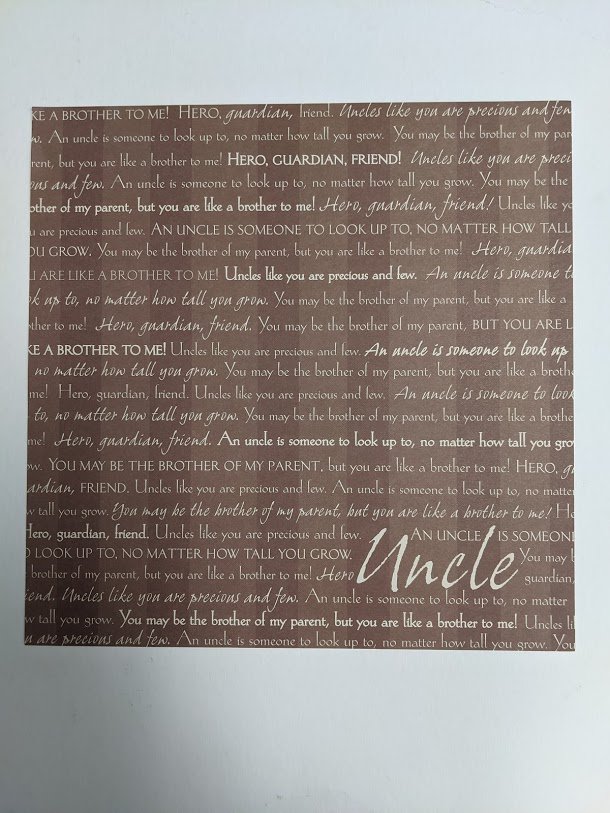 KE A BROTHER TO ME! HERO, guardian, friend. Uncles like you are precious and few
w. An uncle is someone to look up to, no matter how tall you grow. You may be the brother of my par
rent, but you are like a brother to me! HERO, GUARDIAN, FRIEND! Uncles like you are preci
ous and few. An uncle is someone to look up to, no matter how tall you grow. You may be the
other of my parent, but you are like a brother to me! Hero, guardian, friend! Uncles like yo
u are precious and few. AN UNCLE IS SOMEONE TO LOOK UP TO, NO MATTER HOW TALL
OU GROW. You may be the brother of my parent, but you are like a brother to me! Hero, guardia
U ARE LIKE A BROTHER TO ME! Uncles like you are precious and few. An uncle is someone t
ok up to, no matter how tall you grow. You may be the brother of my parent, but you are like a
other to me! Hero, guardian, friend. You may be the brother of my parent, BUT YOU ARE L
KE A BROTHER TO ME! Uncles like you are precious and few. An uncle is someone to look up
no matter how tall you grow. You may be the brother of my parent, but you are like a brothe
me! Hero, guardian, friend. Uncles like you are precious and few. An uncle is someone to look
to, no matter how tall you grow. You may be the brother of my parent, but you are like a brothe
me! Hero, guardian, friend. An uncle is someone to look up to, no matter how tall you grow
ow. YOU MAY BE THE BROTHER OF MY PARENT, but you are like a brother to me! HERO, g
ardian, FRIEND. Uncles like you are precious and few. An uncle is someone to look up to, no matter
w tall you grow. You may be the brother of my parent, but you are like a brother to me! He
Hero, guardian, friend. Uncles like you are precious and few. AN UNCLE IS SOMEONE
O LOOK UP TO, NO MATTER HOW TALL YOU GROW. Uncle You may b
brother of my parent, but you are like a brother to me! Hero guardian,
iend. Uncles like you are precious and few. An uncle is someone to look up to, no matter
w tall you grow. You may be the brother of my parent, but you are like a brother to me! Uncles li
u are precious and few. An uncle is someone to look up to, no matter how tall you grow. You